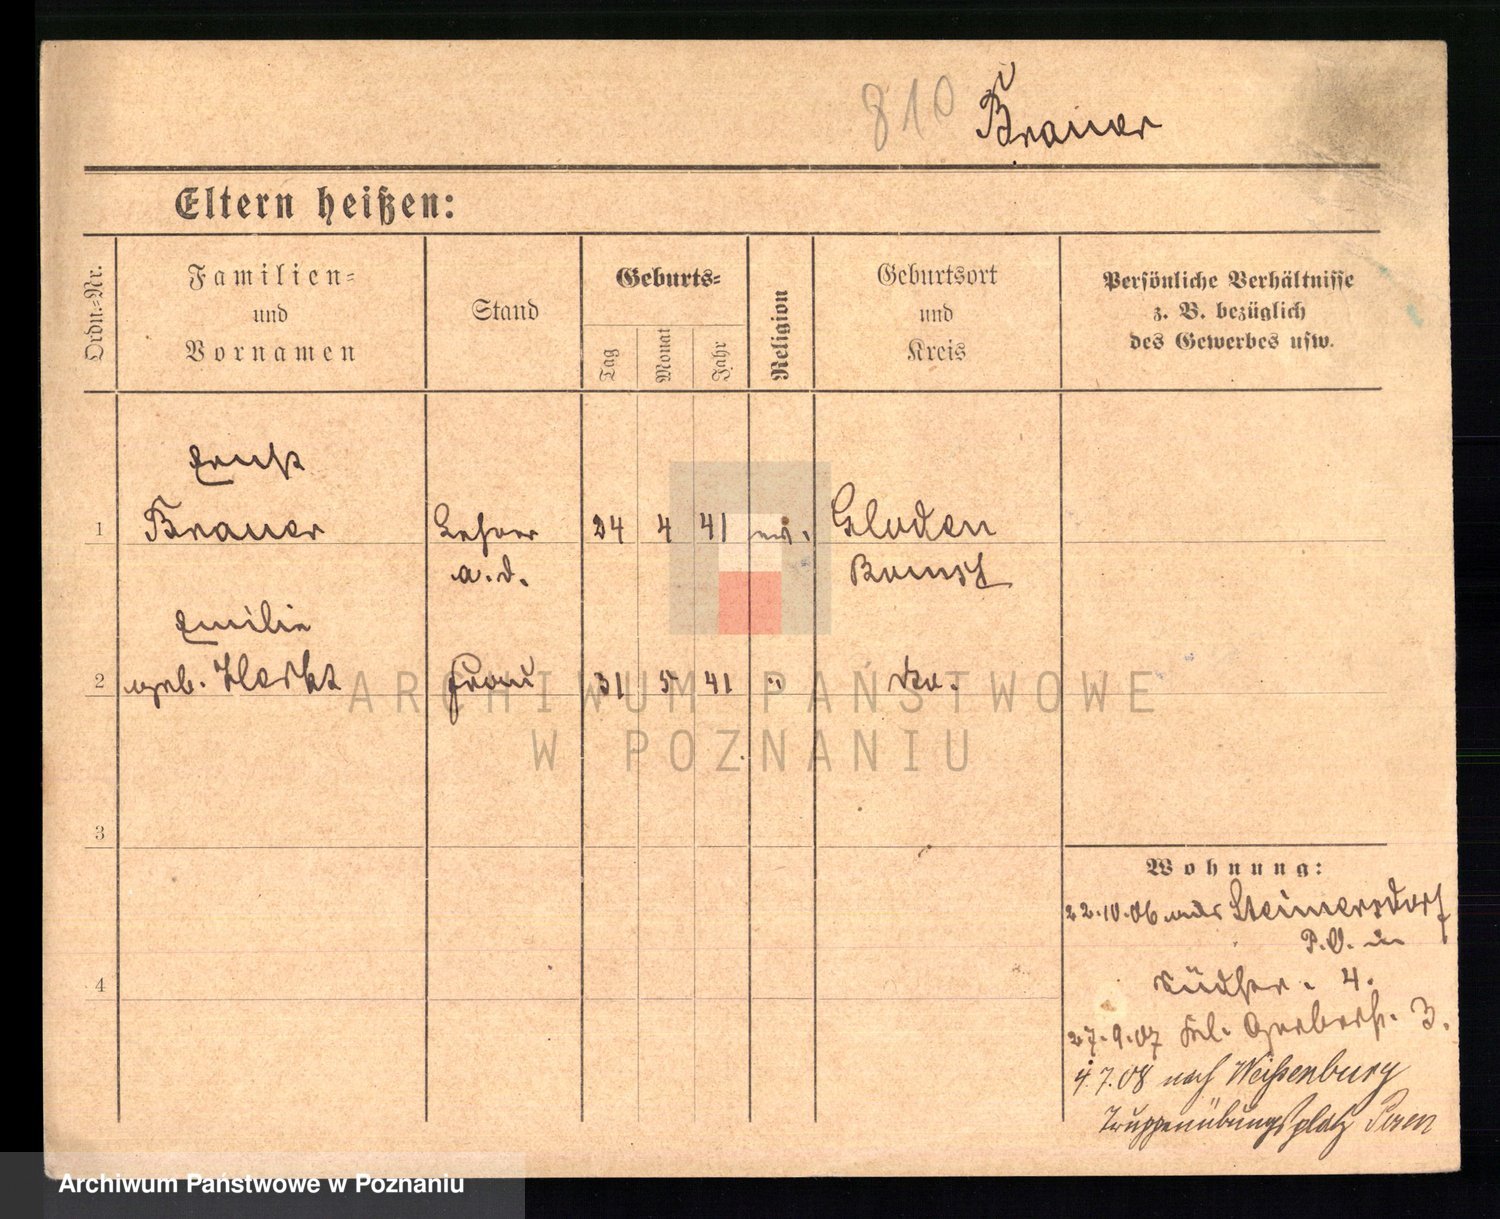 810 Brauer
Eltern heißen:
Ordn.-Nr.
Familien-
und
Vornamen
Stand
Geburts-
Tag
Monat
Jahr
Religion
Geburtsort
und
Kreis
Persönliche Verhältnisse
z. B. bezüglich
des Gewerbes usw.
Ernst
1 Brauer Lehrer 24 4 41 ev. Gloden
a. D. Bomst
Emilie
2 geb. Frau 31 5 41 " do.
3
4
Wohnung:
22.10.06 aus Steinersdorf
P.O. in
4.
27.9.07 Kl. Gerberst. 3.
4.7.08 nach Weißenburg
Truppenübungsplatz Posen
ARCHIWUM PAŃSTWOWE
W POZNANIU
Archiwum Państwowe w Poznaniu